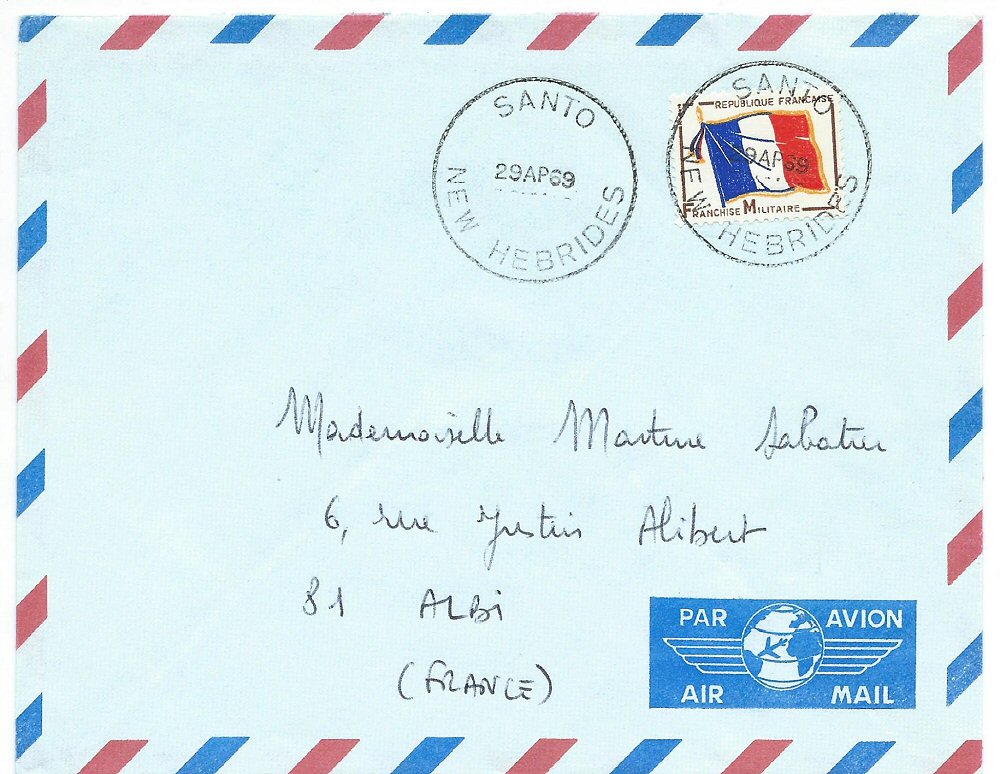 SANTO
29AP69
NEW HEBRIDES
SANTO
REPUBLIQUE FRANCAISE
29AP69
FRANCHISE MILITAIRE
NEW HEBRIDES
Mademoiselle Martine Sabatier
6, rue Justin Alibert
81 ALBi
(FRANCE)
PAR AVION
AIR MAIL